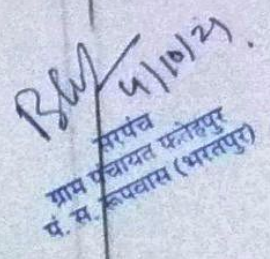 4/10/21.
सरपंच
ग्राम पंचायत फतेहपुर
पं. स. रूपवास (भरतपुर)